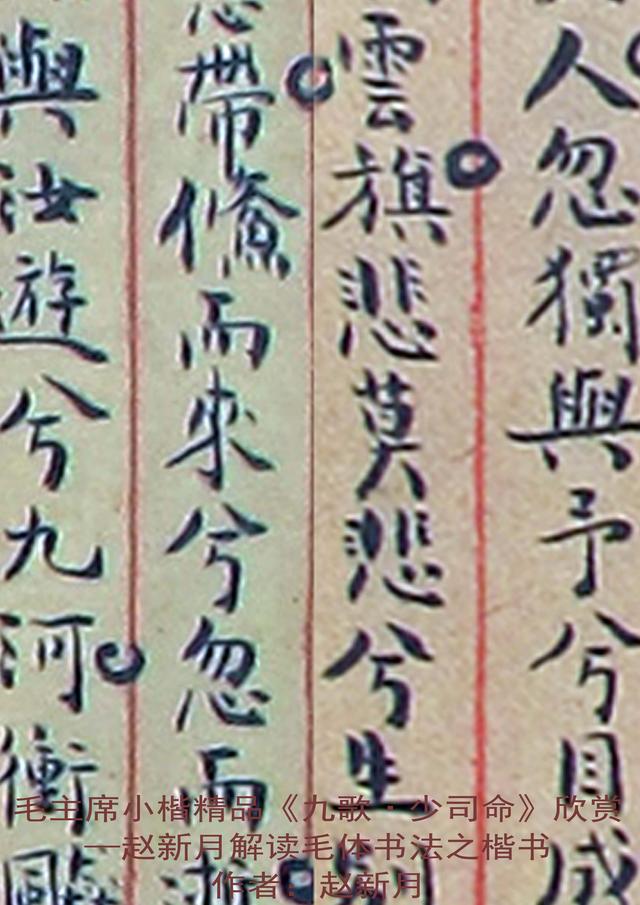 人忽獨與予兮目成
雲旗悲莫悲兮生
帶儵而來兮忽而逝
與汝遊兮九河衝
毛主席小楷精品《九歌·少司命》欣赏
—赵新月解读毛体书法之楷书
作者：赵新月